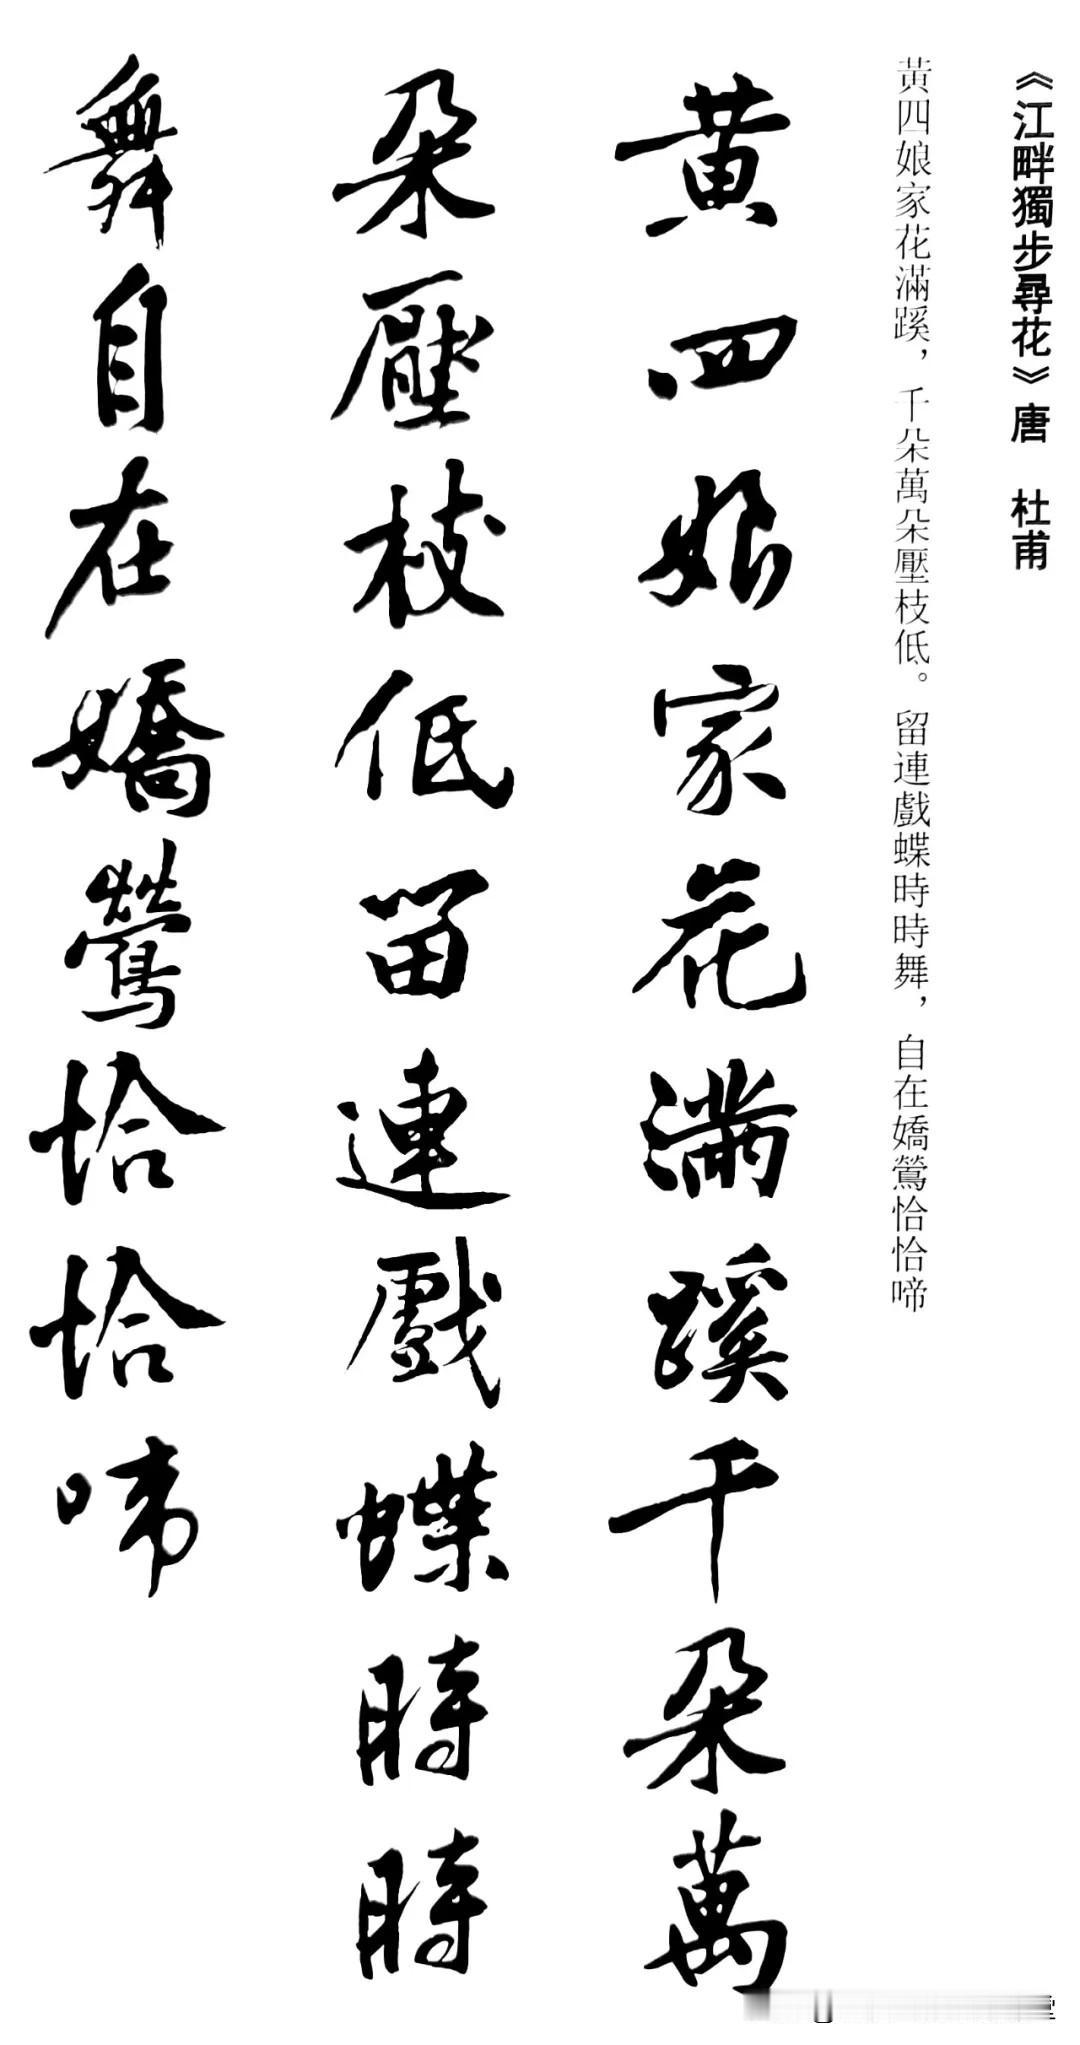 《江畔獨步尋花》唐 杜甫
黃四娘家花滿蹊，千朵萬朵壓枝低。留連戲蝶時時舞，自在嬌鶯恰恰啼
黄四娘家花滿蹊千朵萬
朵壓枝低留連戲蝶時時
舞自在嬌鶯恰恰啼